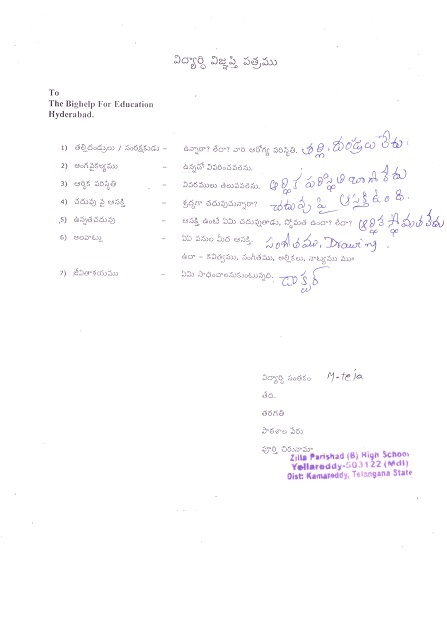 విద్యార్థి విజ్ఞప్తి పత్రము
To
The Bighelp For Education
Hyderabad.
1) తల్లిదండ్రులు / సంరక్షకుడు – ఉన్నారా? లేరా? వారి ఆరోగ్య పరిస్థితి. తల్లి దండ్రులు లేరు.
2) అంగవైకల్యము – ఉన్నచో వివరించవలెను.
3) ఆర్థిక పరిస్థితి – వివరములు తెలుపవలెను. ఆర్థిక పరిస్థితి బాగాలేదు
4) చదువు పై ఆసక్తి – శ్రద్ధగా చదువుచున్నారా? చదువు పై ఆసక్తి ఉంది.
5) ఉన్నతచదువు – ఆసక్తి ఉంటే ఏమి చదువుతాడు, స్తోమత ఉందా? లేదా? ఆర్థిక స్తోమత లేదు
6) అలవాట్లు – ఏఏ పనుల మీద ఆసక్తి. సంగీతము, Drawing.
ఉదా – కవిత్వము, సంగీతము, అల్లికలు, నాట్యము మొ॥
7) జీవితాశయము – ఏమి సాధించాలనుకుంటున్నది. డాక్టర్
విద్యార్థి సంతకం M-teja
తేది.
తరగతి
పాఠశాల పేరు
పూర్తి చిరునామా
Zilla Parishad (B) High School
Yellareddy-503122 (Mdl)
Dist: Kamareddy, Telangana State